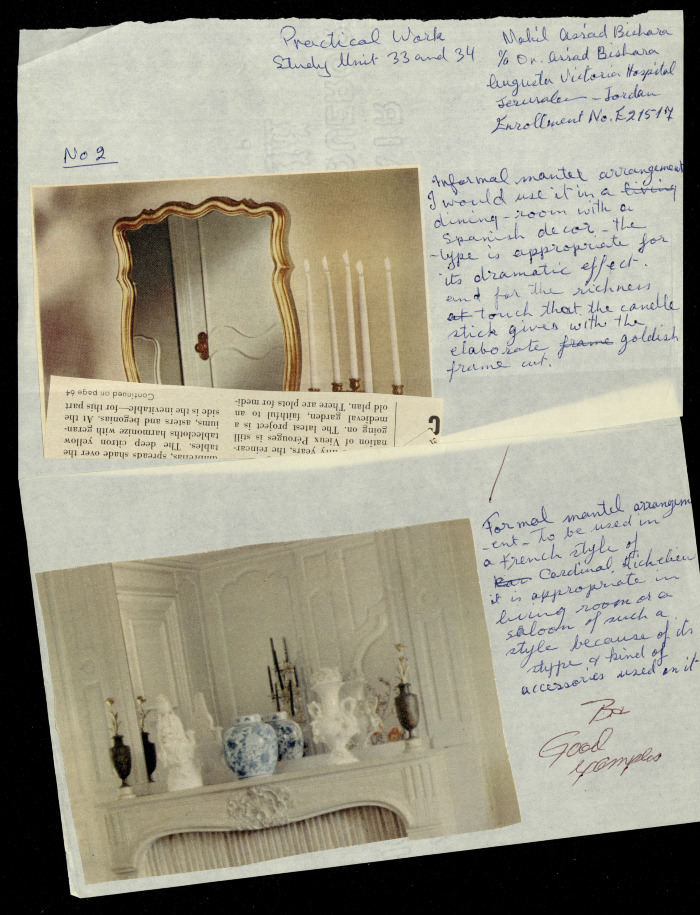 Practical Work
Study Unit 33 and 34
Mahil Assad Bishara
c/o Dr. Assad Bishara
Augusta Victoria Hospital
Jerusalem - Jordan
Enrollment No. E21517
No 2
Informal mantel arrangement
I would use it in a living
dining-room with a
Spanish decor - the
-type is appropriate for
its dramatic effect.
and for the richness
of touch that the candle
stick gives with the
elaborate frame goldish
frame cut.
Continued on page 64
side is the inevitable—for this part
iums, asters and begonias. At the
tablecloths harmonize with geran-
tables. The deep citron yellow
spreads shade over the
old plan. There are plots for medi-
medieval garden, faithful to an
going on. The latest project is a
nation of Vieux Pérouges is still
ny years, the reincar-
Formal mantel arrangem
-ent - to be used in
a French style of
Cardinal Richelieu
it is appropriate in
living room or a
saloon of such a
style because of its
stype & kind of
accessories used on it
B+
Good